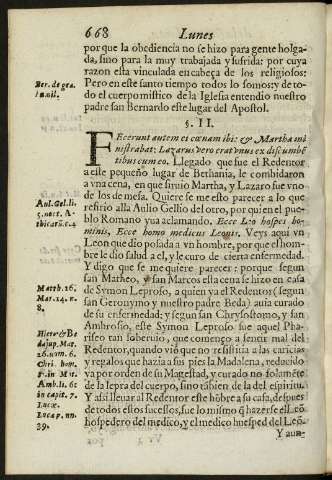 668 Lunes
por que la obediencia no se hizo para gente holga-
da, sino para la muy trabajada y sufrida: por cuya
razon esta vinculada en cabeça de los religiosos:
Pero en este santo tiempo todos lo somos; y de to-
do el cuerpo mistico de la Iglesia entendio nuestro
padre san Bernardo este lugar del Apostol.
Ber. de gra.
§. II.
FEcerunt autem ei cœnam ibi: & Martha mi
nistrabat: Lazarus vero erat vnus ex discumbē
tibus cum eo. Llegado que fue el Redentor
a este pequeño lugar de Bethania, le combidaron
a vna cena, en que siruio Martha, y Lazaro fue vno
de los de mesa. Quiere se me esto parecer a lo que
refirio alla Aulio Gelio del otro, por quien el pue-
blo Romano yua aclamando. Ecce Leo hospes ho-
minis, Ecce homo medicus Leonis. Veys aqui vn
Leon que dio posada a vn hombre, por que el hom-
bre le dio salud a el, y le curo de cierta enfermedad.
Y digo que se me quiere parecer: porque segun
san Matheo, y san Marcos esta cena se hizo en casa
de Symon Leproso, a quien ya el Redentor (segun
san Geronymo y nuestro padre Beda) auia curado
de su enfermedad; y segun san Chrysostomo, y san
Ambrosio, este Symon Leproso fue aquel Pha-
riseo tan soberuio, que començo a sentir mal del
Redentor, quando vio que no resistia a las caricias
y regalos que hazia a sus pies la Madalena, reduzido
ya por orden de su Magestad, y curado no solamēte
de la lepra del cuerpo, sino tābien de la del espiritu.
Y assi lleuar al Redentor este hōbre a su casa, despues
de todos estos sucessos, fue lo mismo q̄ hazerse el Leō
hospedero del medico, y el medico huesped del Leō.
Aul. Gel. li.
5. noct. A-
thicarū. c. 4
Matth. 26.
Mar. 14. n.
8.
Hiero & Be
da sup. Mar.
26. num. 6.
Chri. hom.
Amb. li. 6:
in capit. 7.
Lucæ.
Luca p. nu.
39.
Y aun-